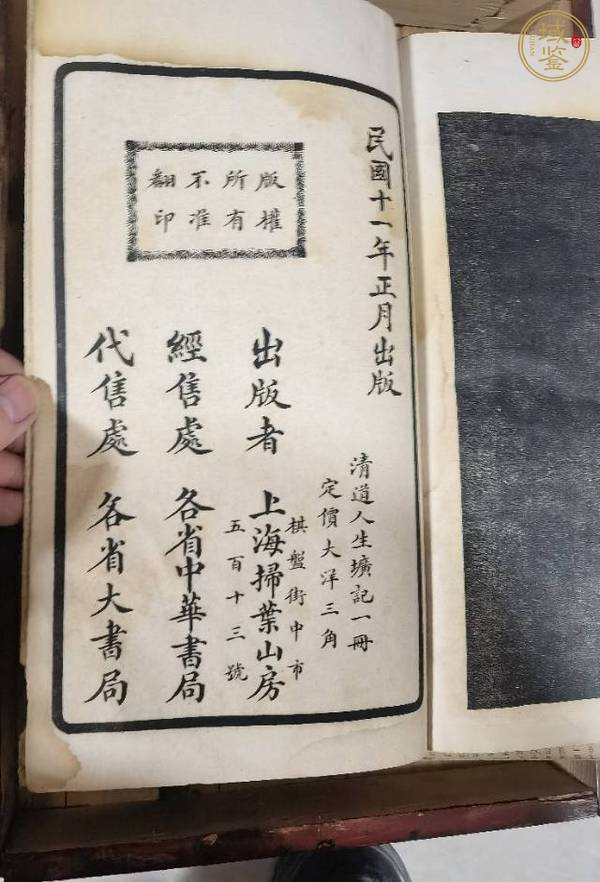 民國十一年正月出版
版權
所有
不准
翻印
清道人生壙記一冊
定價大洋三角
出版者 上海掃葉山房
棋盤街中市
五百十三號
經售處 各省中華書局
代售處 各省大書局
域鉴